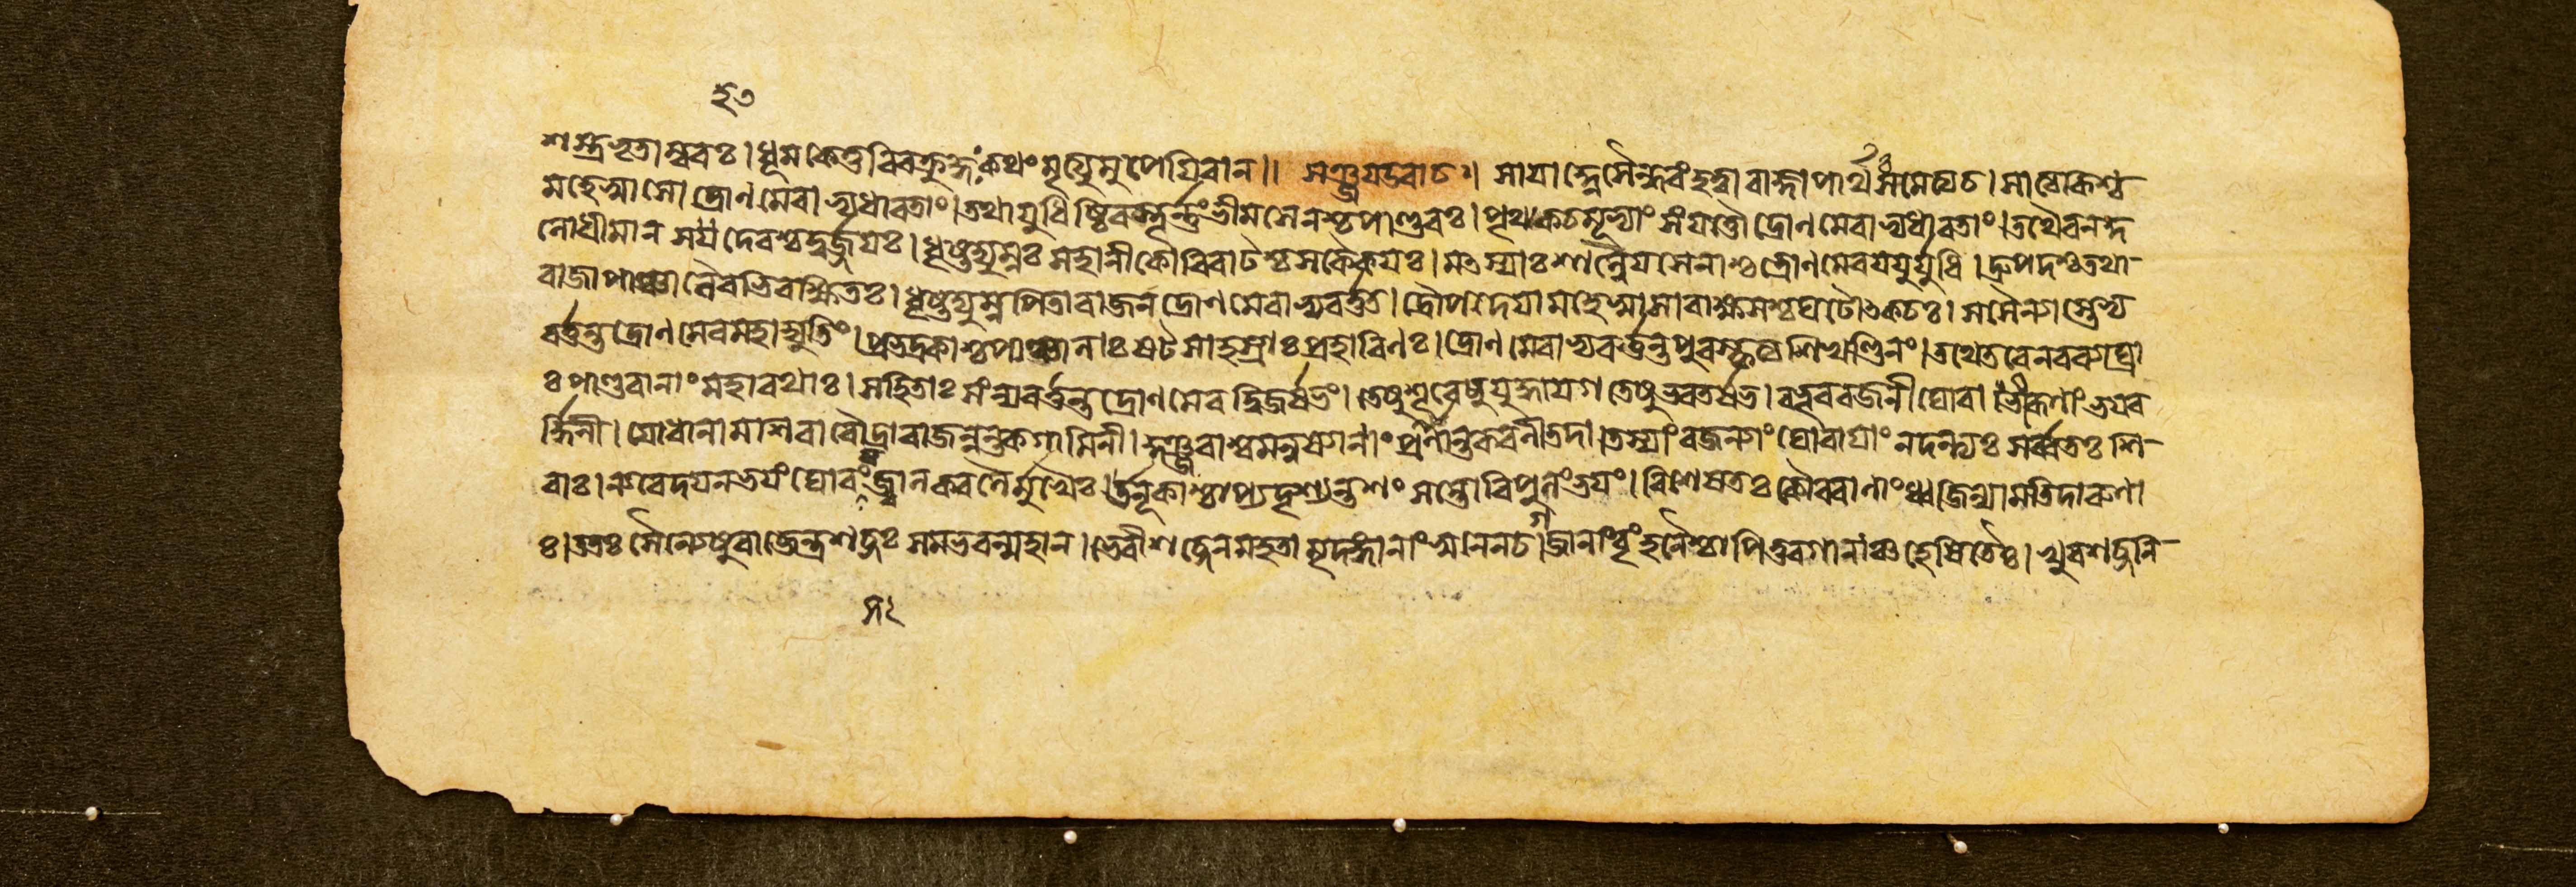 ২৩
শস্ত্রভৃতাম্বরঃ। ধূমকেতুরিবক্রুদ্ধঃ কথং মৃত্যুমুপেয়িবান॥ সঞ্জয়উবাচ॥ সায়াহ্নেসৈন্ধবংহত্বারাজ্ঞাপার্থঃসমেত্যচ। সাত্যকিশ্চ-
মহেষ্বাসো দ্রোণমেবাভ্যধাবতাং। তথাযুধিষ্ঠিরস্তূর্ন্নংভীমসেনশ্চপাণ্ডবঃ। পৃথকচমূভ্যাং সংযত্তৌ দ্রোণমেবাভ্যধাবতাং। তথৈবনকু
লোধীমান সহদেবশ্চদুর্জ্জয়ঃ। ধৃষ্টদ্যুম্নঃ সহানীকৌবিরাটশ্চসকৈকয়ঃ। মৎস্যাঃ শাল্বেয়সেনাশ্চদ্রোণমেবযযুর্যুধি। দ্রুপদশ্চতথা-
রাজাপাঞ্চালৈরভিরক্ষিতঃ। ধৃষ্টদ্যুম্নপিতারাজন দ্রোণমেবাভ্যবর্ত্তত। দ্রৌপদেয়ামহেষ্বাসারাক্ষসশ্চঘটোৎকচঃ। সসৈন্যাস্তেভ্য
বর্ত্তন্তদ্রোণমেবমহাদ্যুতিং। প্রভদ্রকাশ্চপাঞ্চালাঃ ষটসাহস্রাঃ প্রহারিণঃ। দ্রোণমেবাভ্যবর্ত্তন্তপুরস্কৃত্যশিখণ্ডিনং। তথেতরেনরব্যাঘ্রা
ঃ পাণ্ডবানাং মহারথাঃ। সহিতাঃ সংন্যবর্ত্তন্তদ্রোণমেবদ্বিজর্ষভং। তেষুশূরেষুযুদ্ধায়গতেষুভরতর্ষভ। বভূবরজনীঘোরা ভীরূণাং ভয়ব
র্দ্ধিনী। যোধানামাশিবারৌদ্রারাজন্নন্তকগামিনী। কুঞ্জরাশ্বমনুষ্যেণাং প্রাণান্তকরনীতদা। তস্যাং রজন্যাং ঘোরায়াং নদন্ত্যঃ সর্ব্বতঃ শি-
বাঃ। ন্যবেদয়নভয়ং ঘোরং সজ্বালকবলৈর্মুখৈঃ। উলূকাশ্চাপ্যদৃশ্যন্তশংসন্তোবিপুলংভয়ং। বিশেষতঃ কৌরবানাং ধ্বজিন্যামতিদারুণা
ঃ। ততঃ সৈন্যেষুরাজেন্দ্রশব্দঃ সমভবন্মহান। ভেরীশব্দেনমহতামৃদঙ্গানাং স্বনেনচ। গজানাংবৃংহনৈশ্চাপিতুরগানাঞ্চহেষিতৈঃ। খুরশব্দনি-